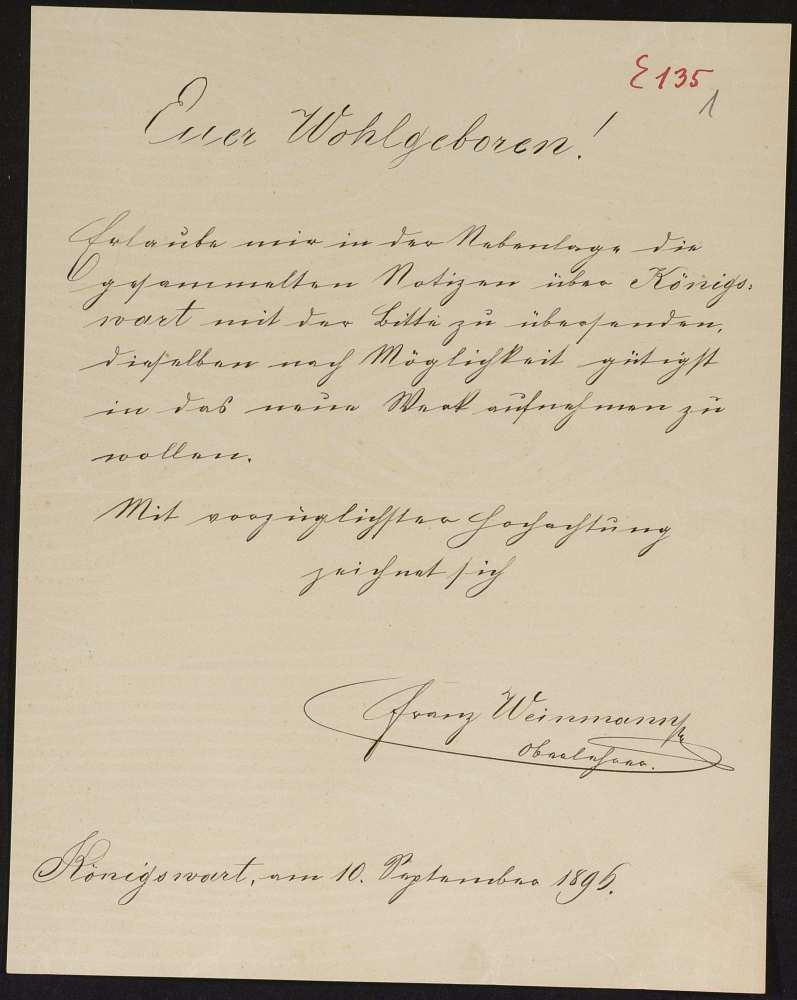 E 135
1
Euer Wohlgeboren!
Erlaube mir in der Nebenlage die
gesammelten Notizen über Königs-
wart mit der Bitte zu übersenden,
dieselben nach Möglichkeit gütigst
in das neue Werk aufnehmen zu
wollen.
Mit vorzüglichster Hochachtung
zeichnet sich
Franz Weinmann
Oberlehrer.
Königswart, am 10. September 1895.